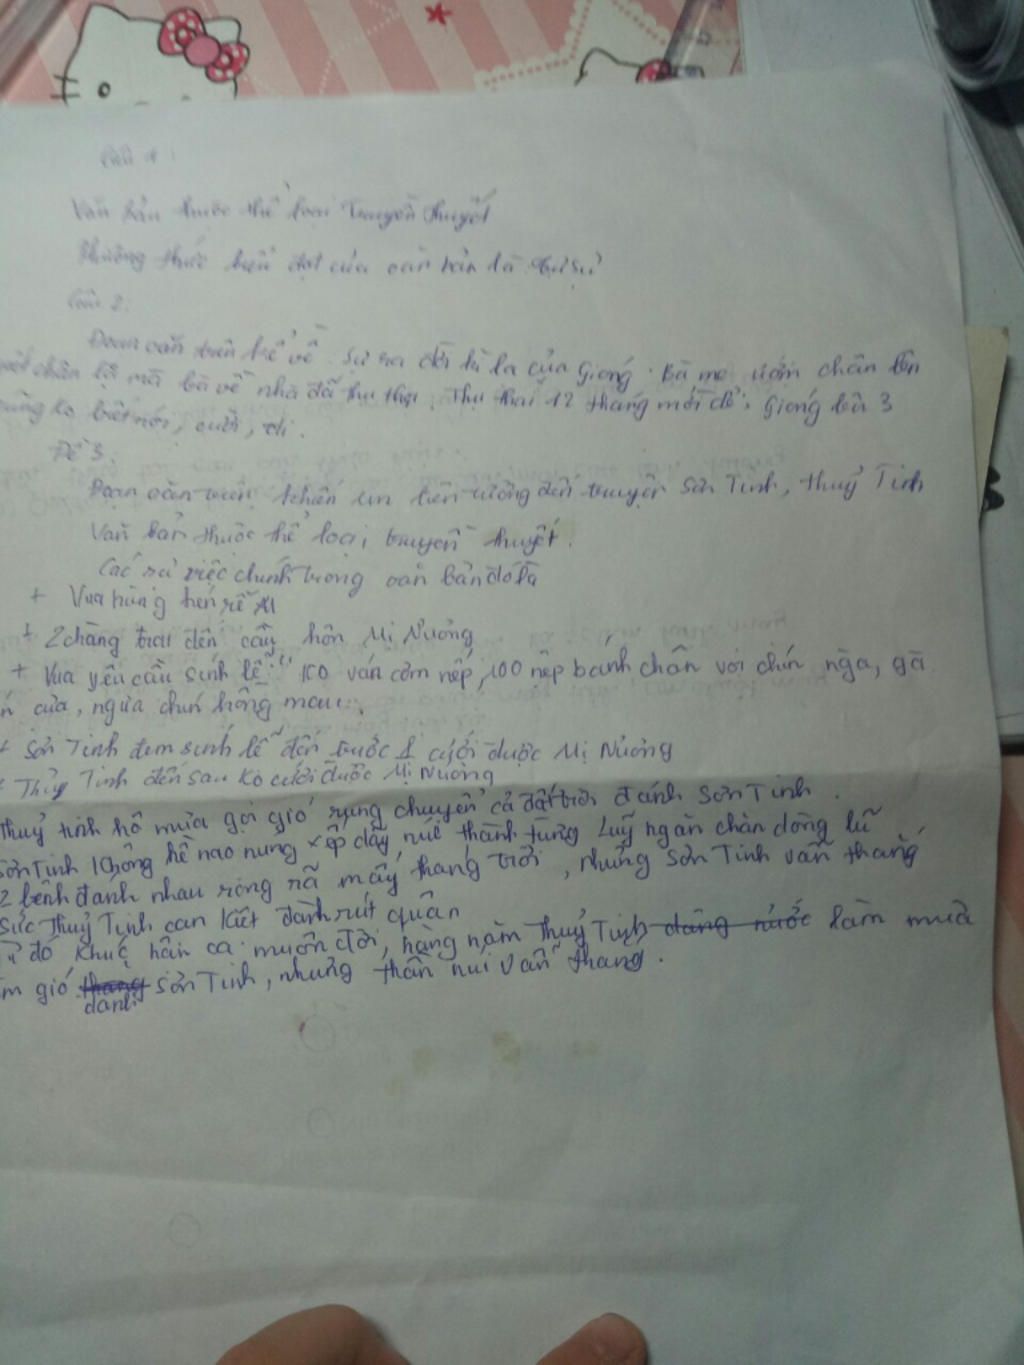 Câu 1:
Văn bản thuộc thể loại Truyền thuyết
Phương thức biểu đạt của văn bản là tự sự
Câu 2:
Đoạn văn trên kể về sự ra đời kì lạ của Gióng. Bà mẹ ướm chân lên
chân lạ mà bà về nhà đã thụ thai. Thụ thai 12 tháng mới đẻ, Gióng lên 3
cũng ko biết nói, cười, đi.
Đề 3.
Đoạn văn trên khiến em liên tưởng đến truyện Sơn Tinh, Thuỷ Tinh
Văn bản thuộc thể loại truyền thuyết.
Các sự việc chính trong văn bản đó là
+ Vua hùng kén rể
+ 2 chàng trai đến cầu hôn Mị Nương
+ Vua yêu cầu sính lễ: " 100 ván cơm nếp, 100 nệp bánh chân voi chín ngà, gà
cửa, ngựa chín hồng mao.
+ Sơn Tinh đem sính lễ đến trước cưới được Mị Nương
+ Thủy Tinh đến sau ko cưới được Mị Nương
Thuỷ tinh hô mưa gọi gió rung chuyển cả đất trời đánh Sơn Tinh.
Sơn Tinh không hề nao núng dãy núi thành từng luỹ ngăn chặn dòng lũ
2 bênh đánh nhau ròng rã mấy tháng trời, nhưng Sơn Tinh vẫn thắng
Sức Thuỷ Tinh cạn kiệt đành rút quân
đó khúc hân ca muôn đời, hàng năm Thuỷ Tinh dâng nước làm mưa
gió đánh Sơn Tinh, nhưng thần núi vẫn thắng.